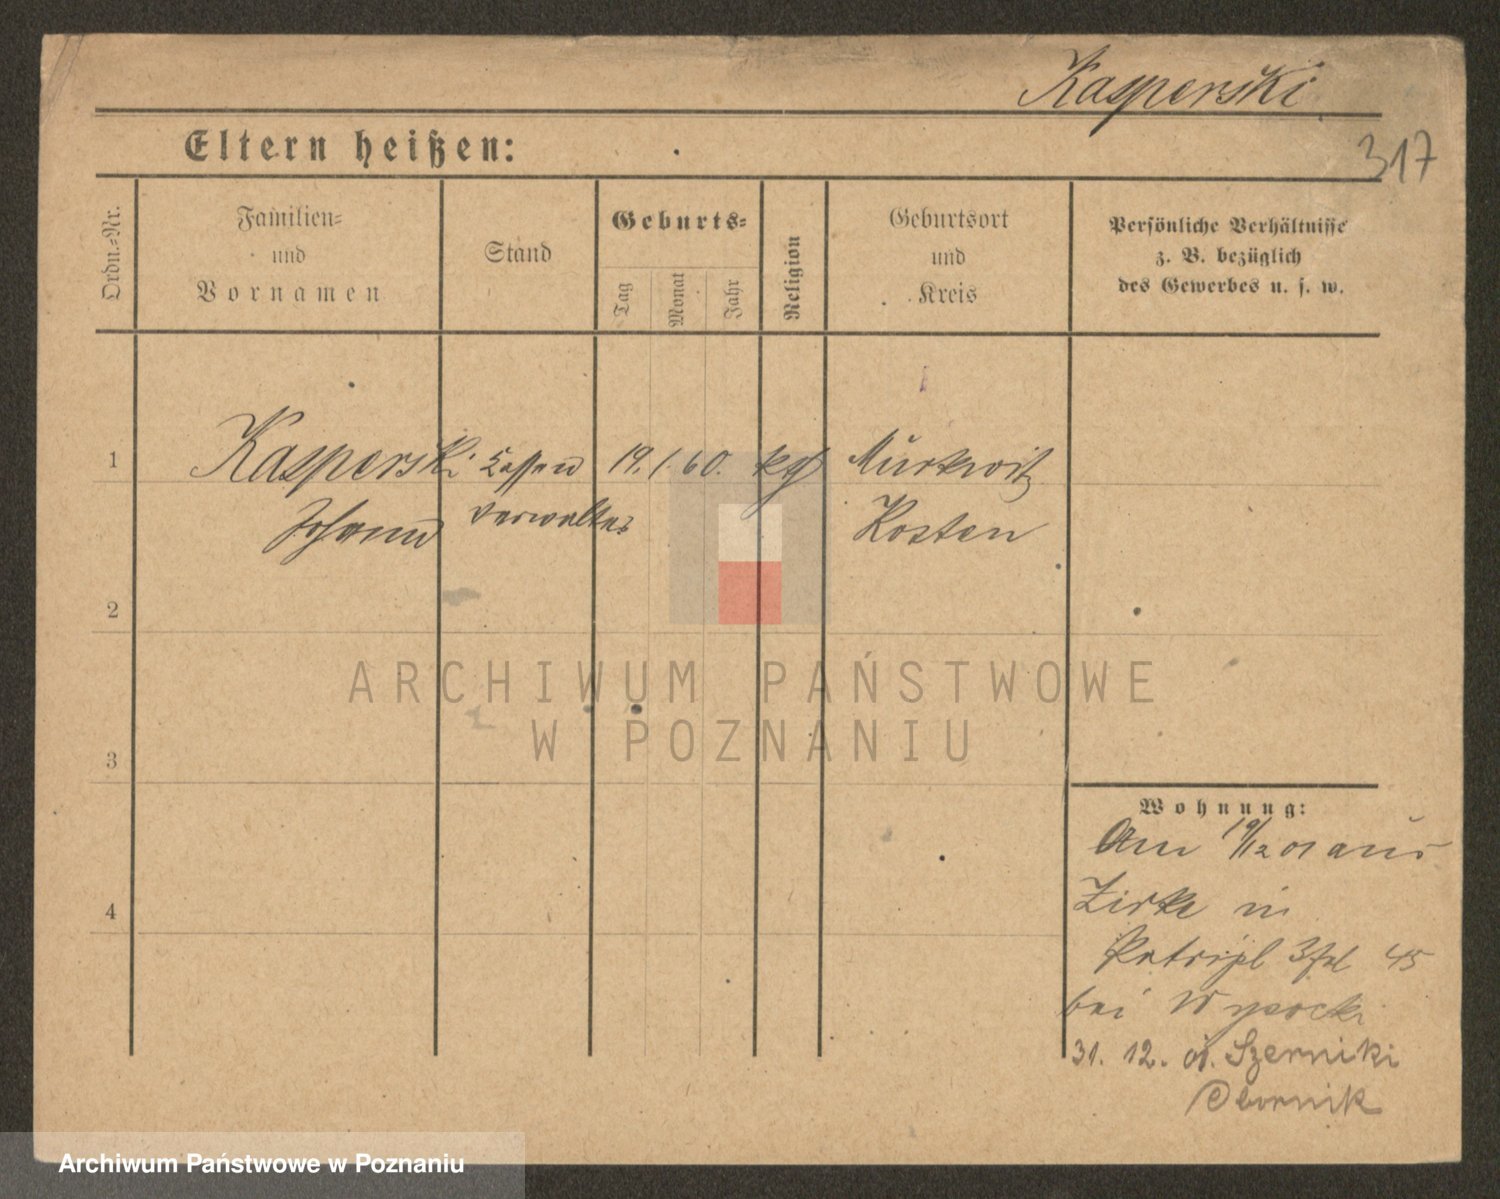 Kasperski
317
Eltern heißen:
Ordn.-Nr.
Familien-
und
Vornamen
Stand
Geburts-
Tag
Monat
Jahr
Religion
Geburtsort
und
Kreis
Persönliche Verhältnisse
z. B. bezüglich
des Gewerbes u. s. w.
1 Kasperski 19. 1. 60. kth
Johann verwalter Kosten
2
3
4
ARCHIWUM PAŃSTWOWE
W POZNANIU
Wohnung:
Am 19/12 01 aus
Zirke in
45
bei Wysocki
31. 12. 01. Szerniki
Obornik
Archiwum Państwowe w Poznaniu